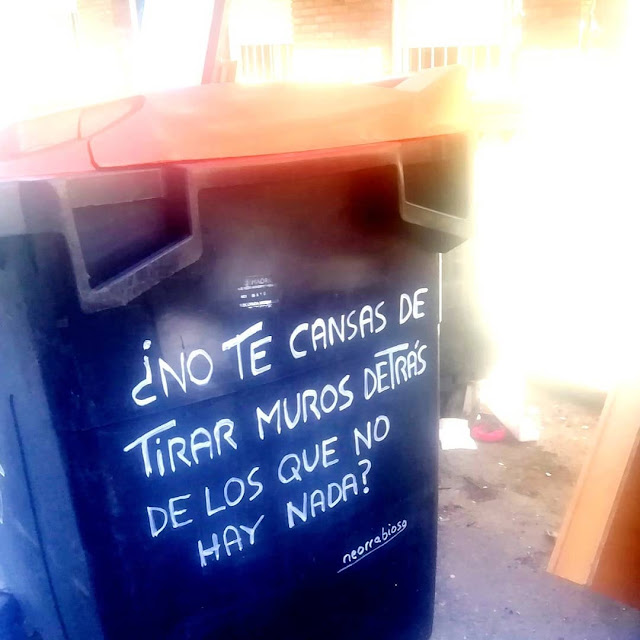 ¿NO TE CANSAS DE
TIRAR MUROS DETRÁS
DE LOS QUE NO
HAY NADA?
neorrabioso